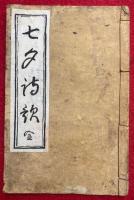 七夕詩歌 全